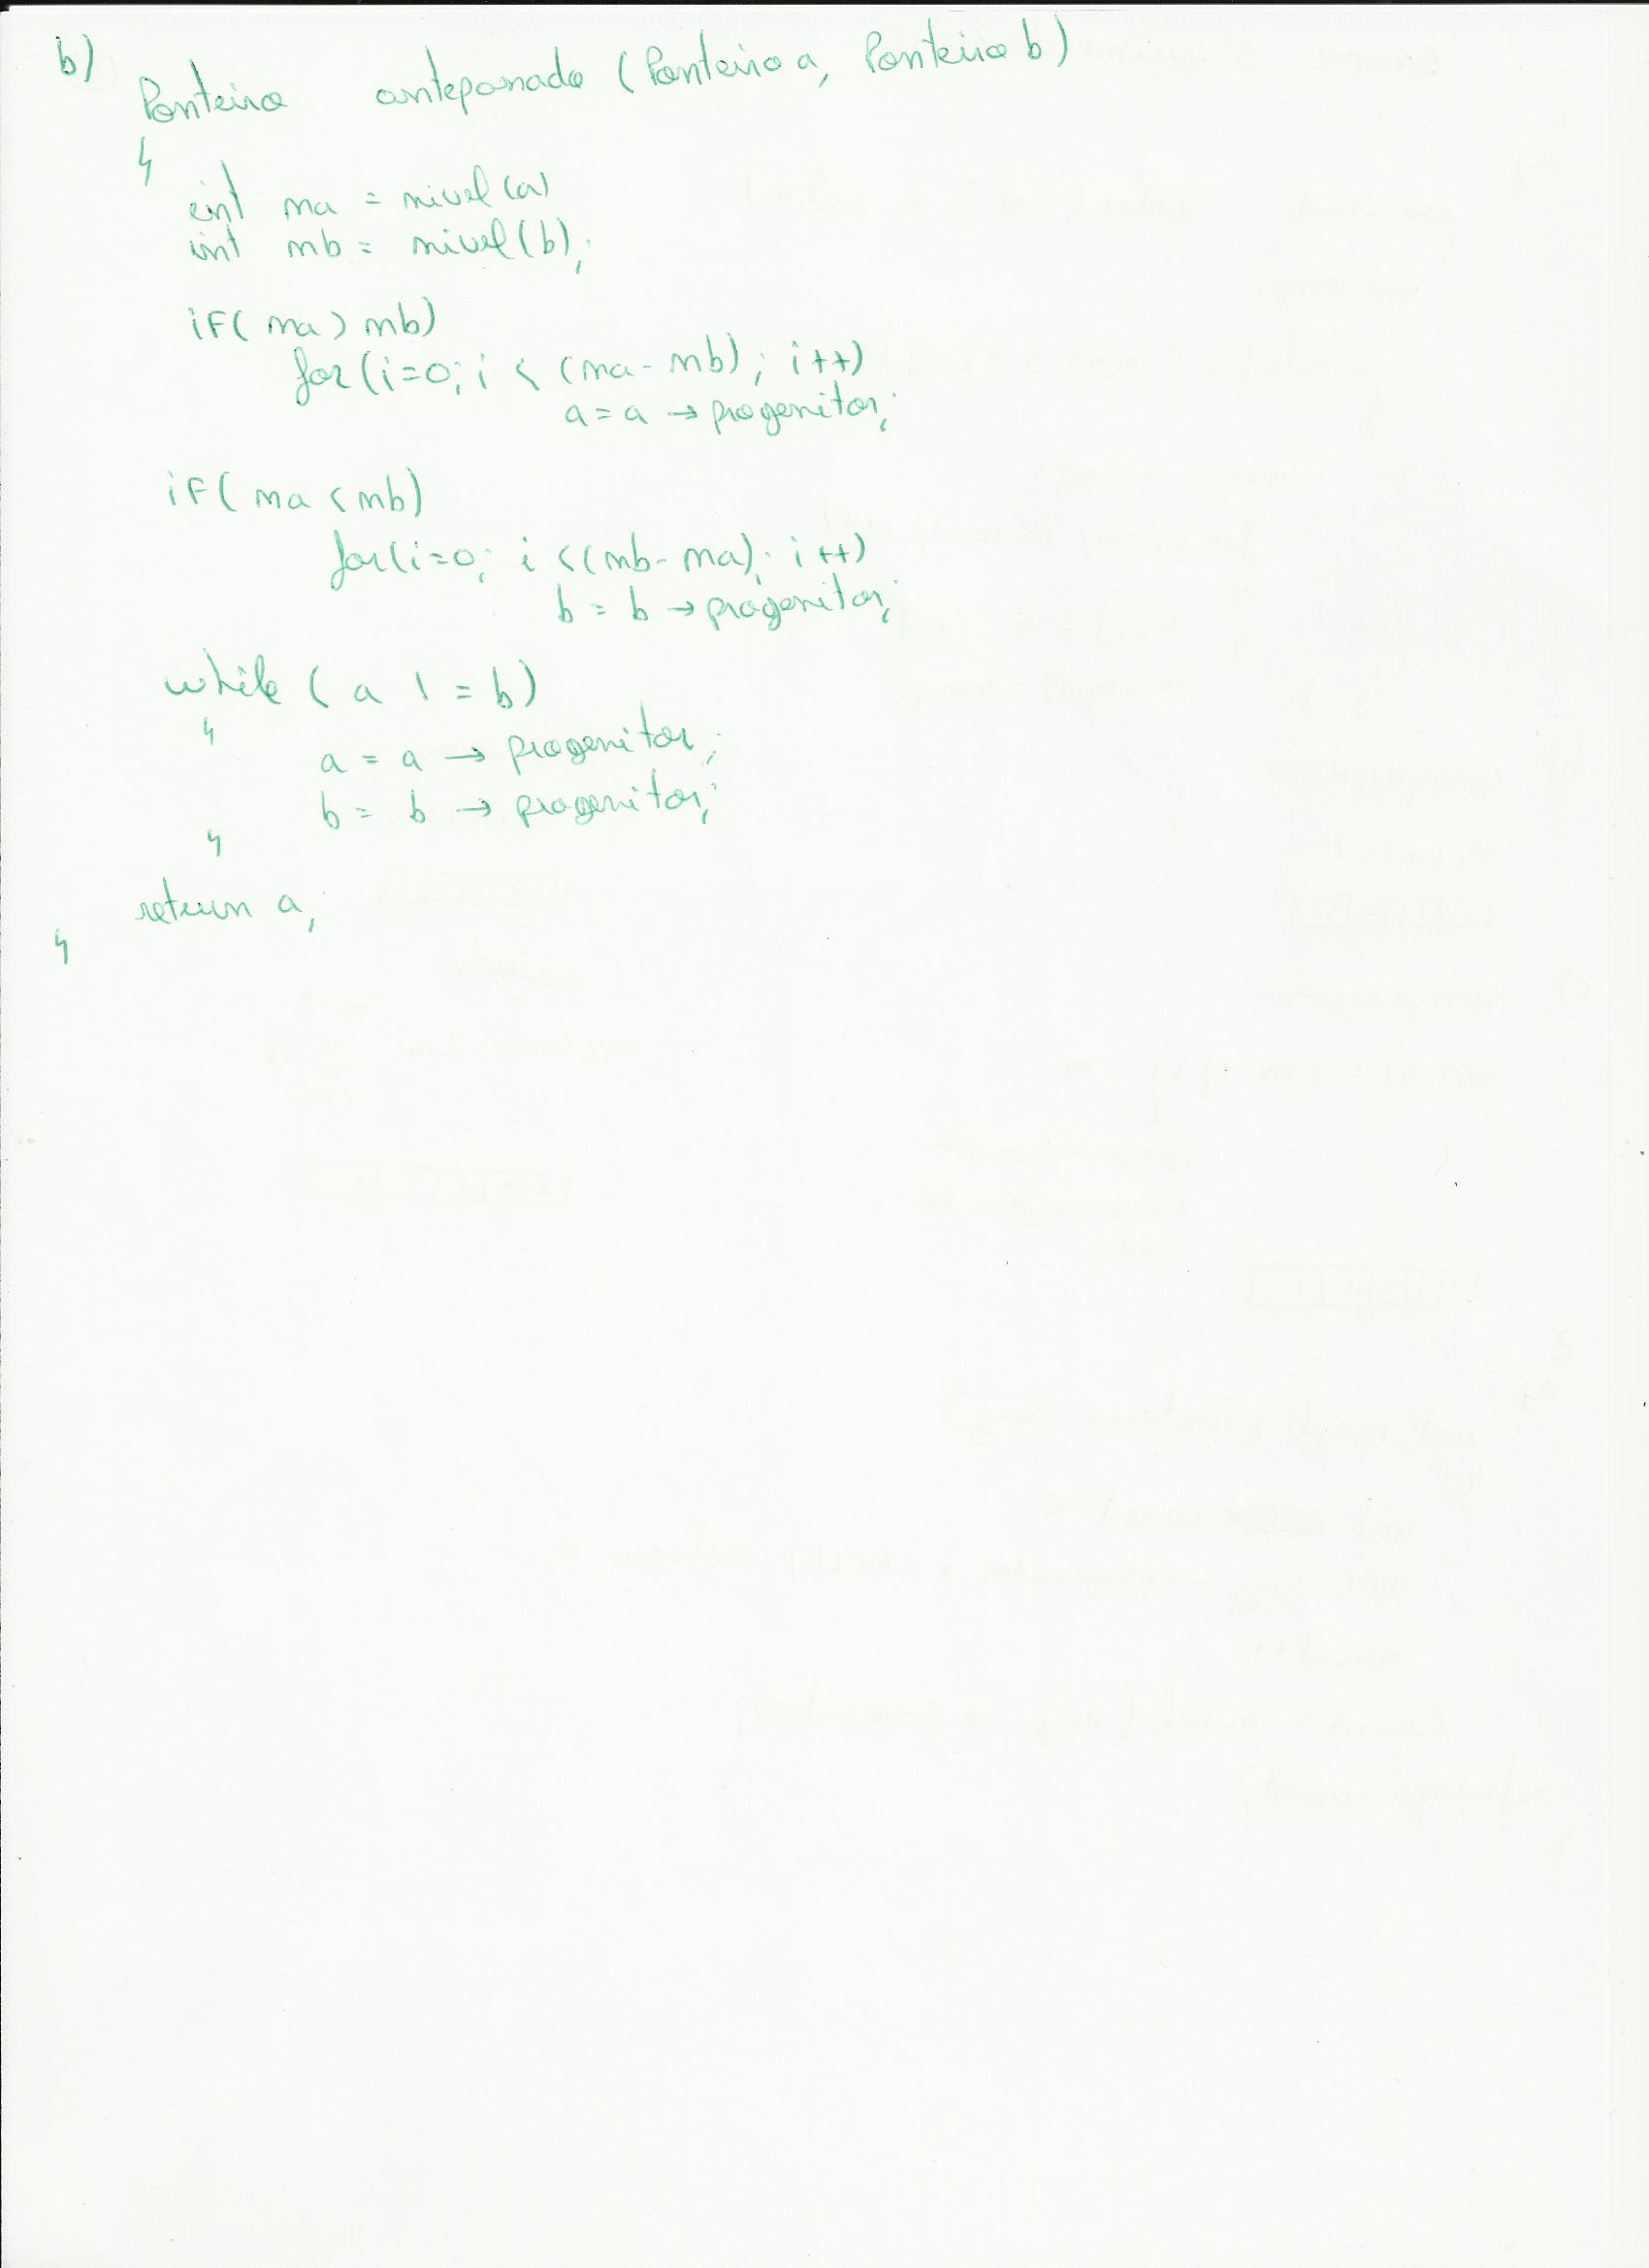 b)
Ponteiro antepassado (Ponteiro a, Ponteiro b)
{
int na = nivel(a)
int nb = nivel(b);
if( na > nb)
for(i=0; i < (na - nb); i++)
a = a → progenitor;
if( na < nb)
for(i=0; i < (nb - na); i++)
b = b → progenitor;
while ( a != b)
{
a = a → progenitor;
b = b → progenitor;
}
return a;
}